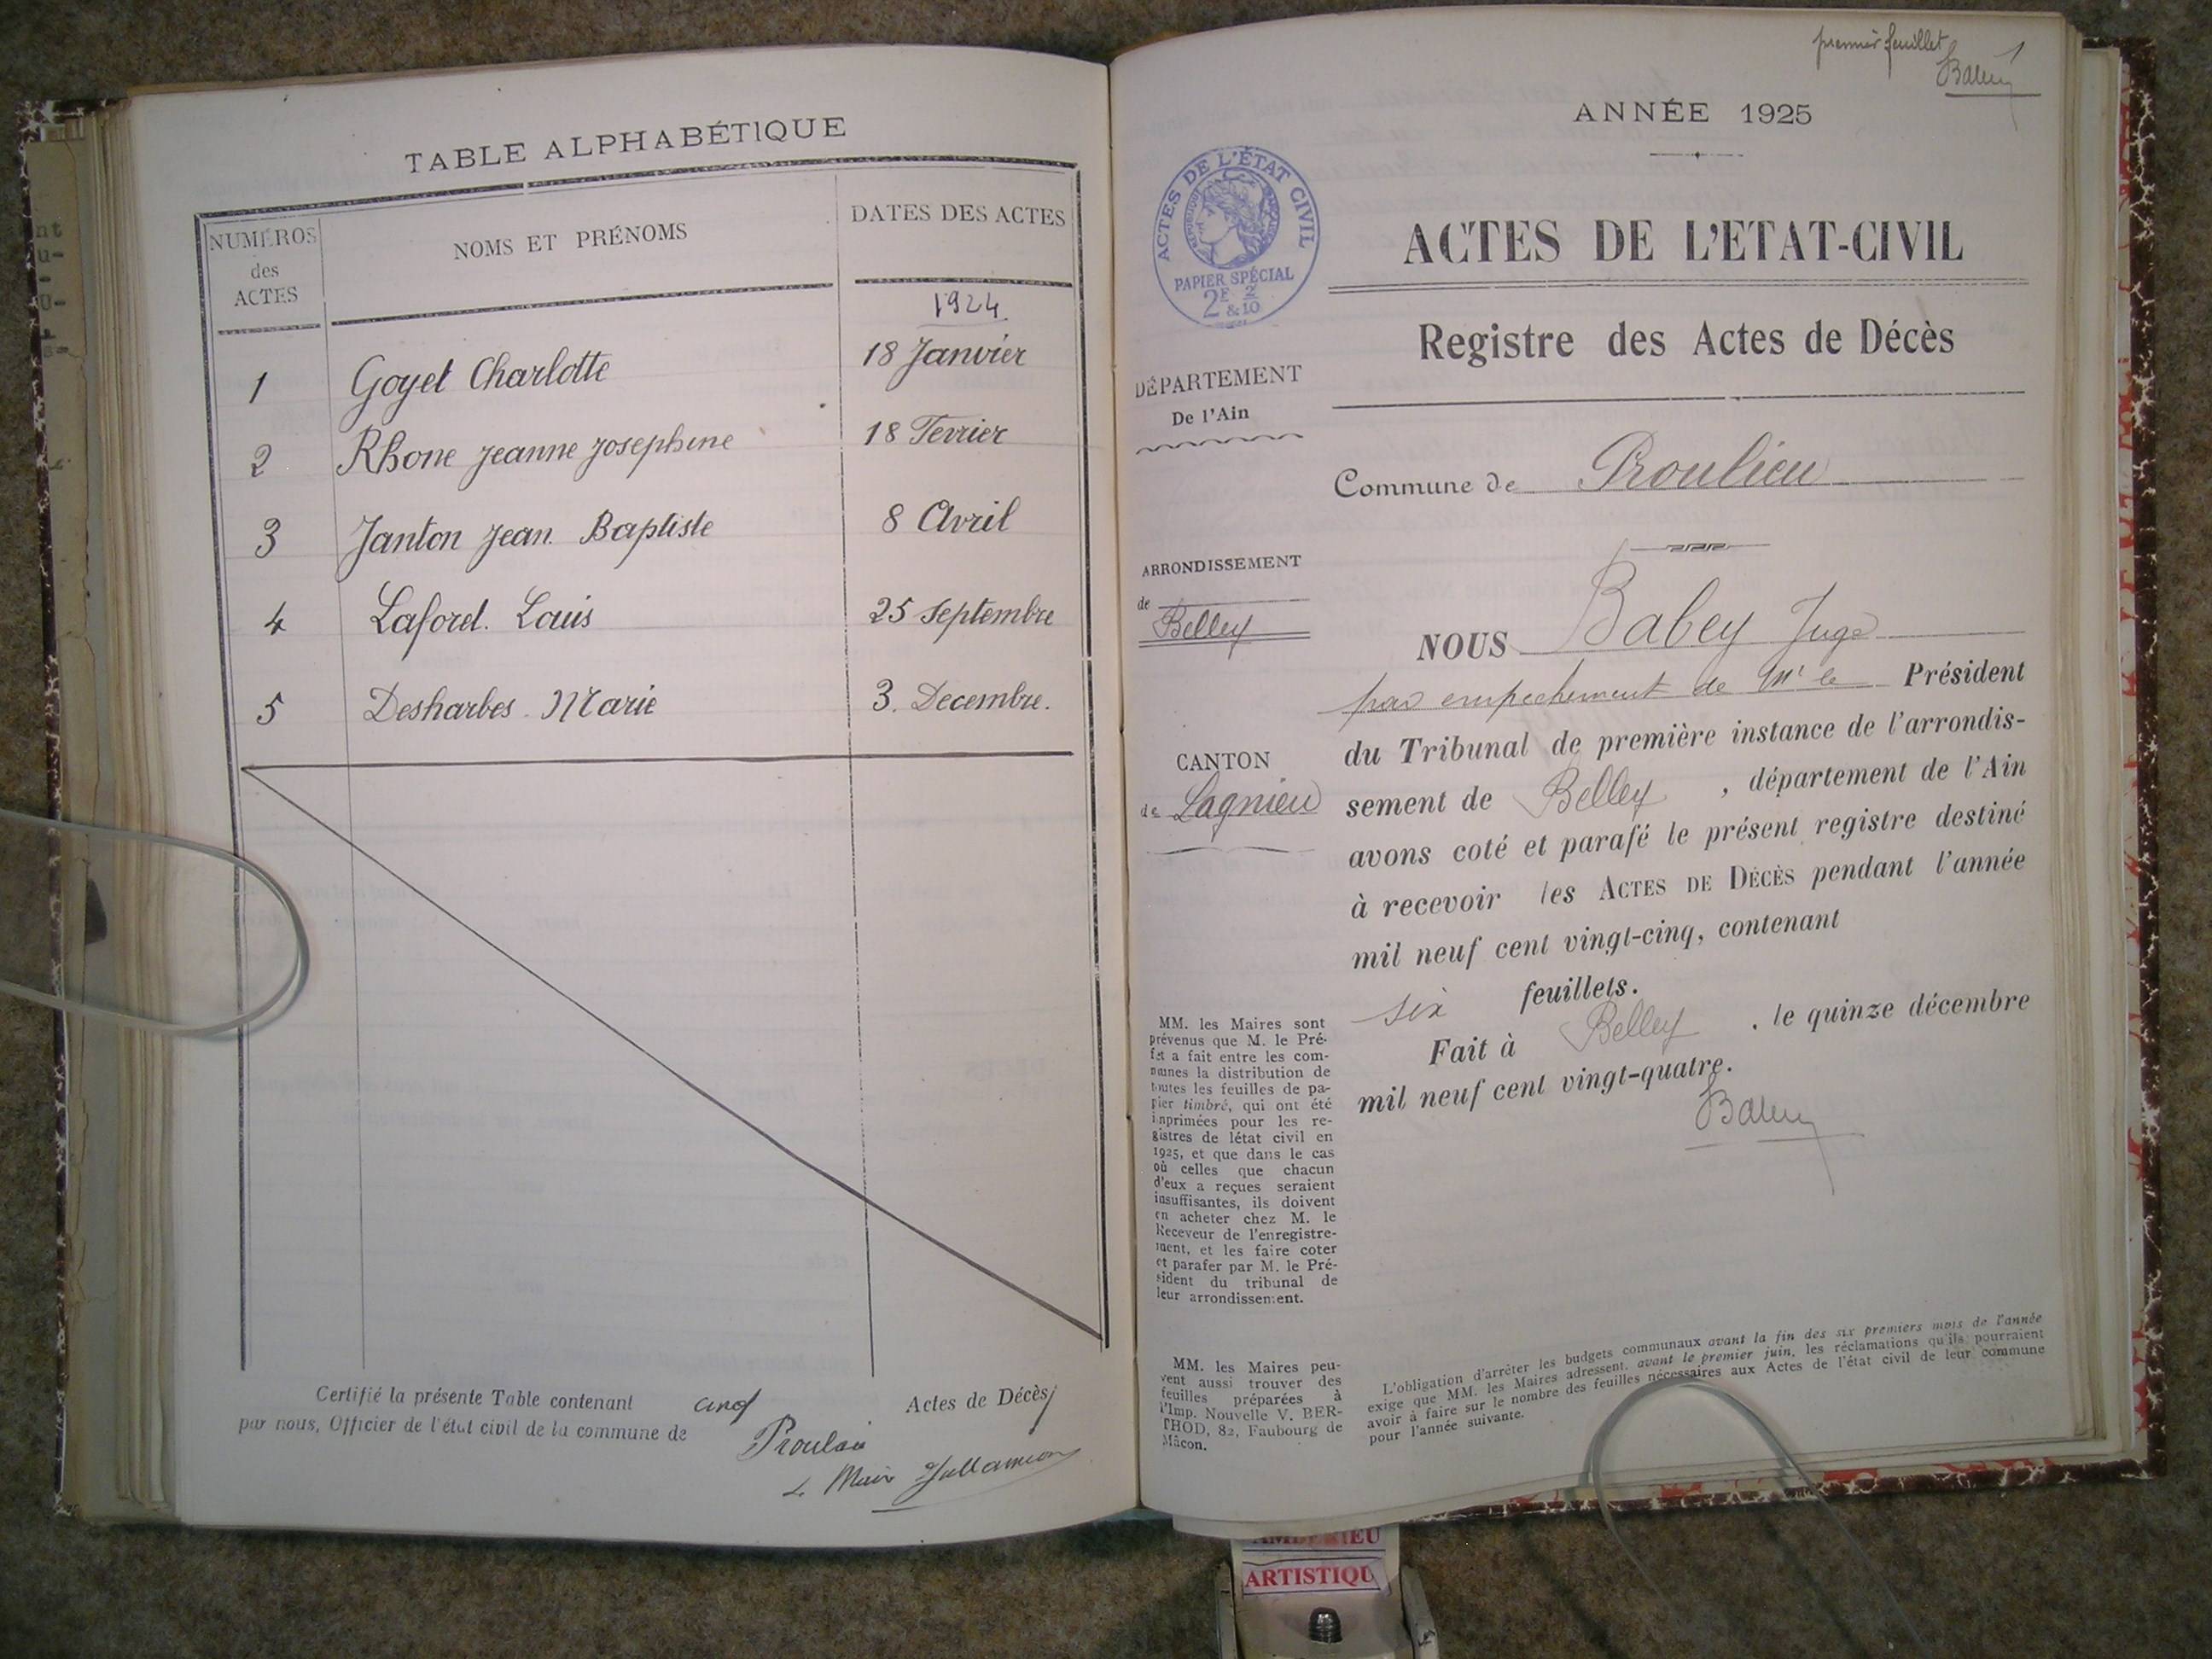 TABLE ALPHABÉTIQUE
NUMÉROS
des
ACTES
NOMS ET PRÉNOMS
DATES DES ACTES
1924.
1 Goyet Charlotte 18 Janvier
2 Rhone Jeanne Josephine 18 Fevrier
3 Janton Jean Baptiste 8 Avril
4 Laforet. Louis 25 Septembre
5 Desharbes Marie 3. Decembre.
Certifié la présente Table contenant cinq Actes de Décès
par nous, Officier de l'état civil de la commune de
Proulieu
Le Maire
premier feuillet 1
ANNÉE 1925
ACTES DE L'ÉTAT CIVIL
RÉPUBLIQUE FRANÇAISE
PAPIER SPÉCIAL
2F 2
&10
ACTES DE L'ETAT-CIVIL
Registre des Actes de Décès
DÉPARTEMENT
De l'Ain
Commune de Proulieu
ARRONDISSEMENT
de
Belley
CANTON
de Lagnieu
NOUS Babey Juge
par empechement de Mr le Président
du Tribunal de première instance de l'arrondis-
sement de Belley , département de l'Ain
avons coté et parafé le présent registre destiné
à recevoir les ACTES DE DÉCÈS pendant l'année
mil neuf cent vingt-cinq, contenant
six feuillets.
Fait à Belley , le quinze décembre
mil neuf cent vingt-quatre.
Babey
MM. les Maires sont
prévenus que M. le Pré-
fet a fait entre les com-
munes la distribution de
toutes les feuilles de pa-
pier timbré, qui ont été
imprimées pour les re-
gistres de létat civil en
1925, et que dans le cas
où celles que chacun
d'eux a reçues seraient
insuffisantes, ils doivent
en acheter chez M. le
Receveur de l'enregistre-
ment, et les faire coter
et parafer par M. le Pré-
sident du tribunal de
leur arrondissement.
MM. les Maires peu-
vent aussi trouver des
feuilles préparées à
l'Imp. Nouvelle V. BER-
THOD, 82, Faubourg de
Mâcon.
L'obligation d'arrêter les budgets communaux avant la fin des six premiers mois de l'année
exige que MM. les Maires adressent, avant le premier juin, les réclamations qu'ils pourraient
avoir à faire sur le nombre des feuilles nécessaires aux Actes de l'état civil de leur commune
pour l'année suivante.
ARTISTIQU